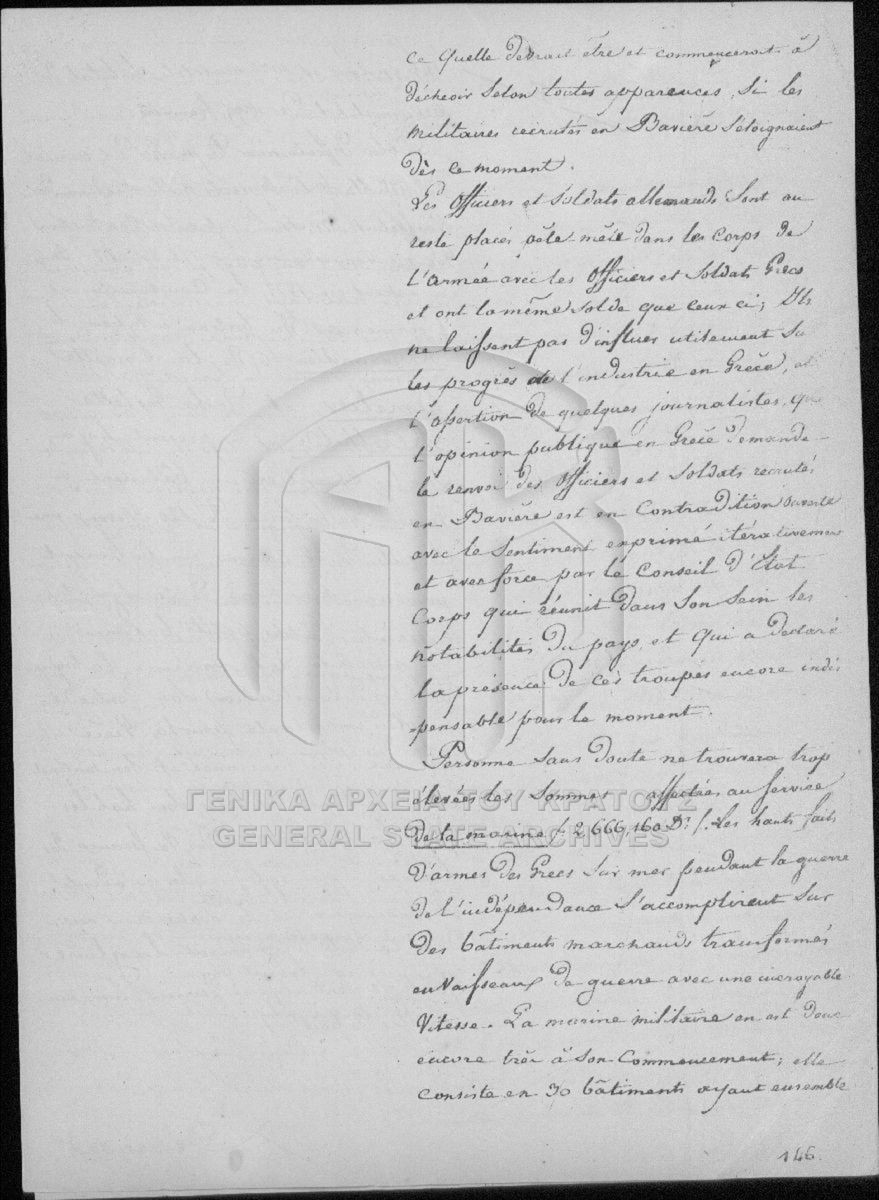 ce quelle devrait être et commenceront à
décheoir selon toutes apparences, si les
militaires recrutés en Bavière s'éloignaient
dès ce moment.
Les Officiers et Soldats allemands sont au
reste placés pêle-mêle dans les corps de
l'armée avec les Officiers et Soldats Grecs
et ont la même solde que ceux ci; Ils
ne laissent pas d'influer utilement su
les progrès de l'industrie en Grèce, et
l'assertion de quelques journalistes, que
l'opinion publique en Grèce demande
le renvoi des Officiers et Soldats recrutés
en Bavière est en Contradition ouverte
avec le Sentiment exprimé itérativement
et avec force par le Conseil d'État
Corps qui réunit dans Son Sein les
notabilités du pays, et qui a declaré
la présence de ces troupes encore indis
-pensable pour le moment.
Personne Sans doute ne trouvera trop
élevées les Sommes affectées au Service
de la marine /: 2,666,160 Dr. /. Les hauts faits
d'armes des Grecs Sur mer pendant la guerre
de l'indépendance S'accomplirent Sur
des bâtiments marchands transformés
en Vaisseaux de guerre avec une incroyable
Vitesse. La marine militaire en est donc
encore très à Son Commencement; elle
consiste en 30 bâtiments ayant ensemble
146.
ΓΕΝΙΚΑ ΑΡΧΕΙΑ ΤΟΥ ΚΡΑΤΟΥΣ
GENERAL STATE ARCHIVES